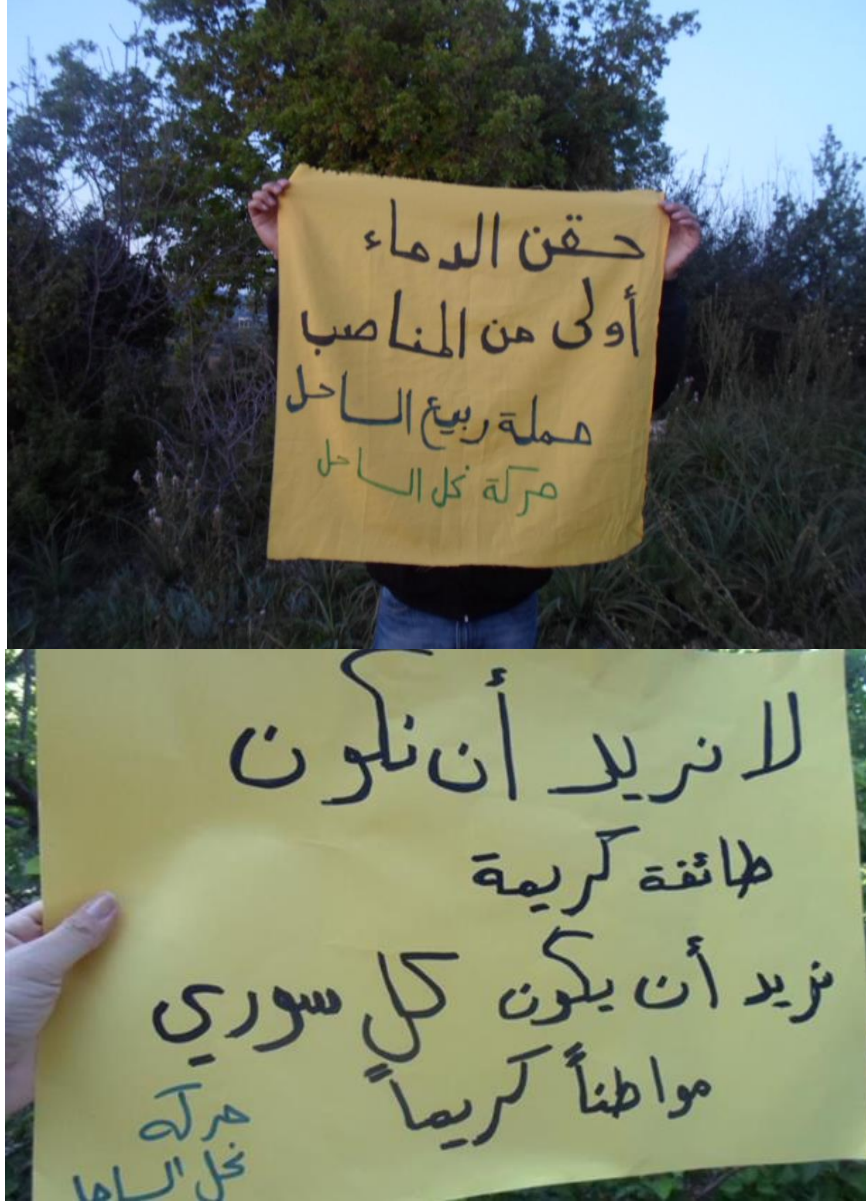 حقن الدماء
أولى من المناصب
حملة ربيع الساحل
حركة نحل الساحل
لا نريد أن نكون
طائفة كريمة
نريد أن يكون كل سوري
مواطناً كريماً
حركة
نحل الساحل